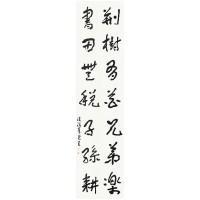 荊樹有花兄弟樂
書田無稅子孫耕